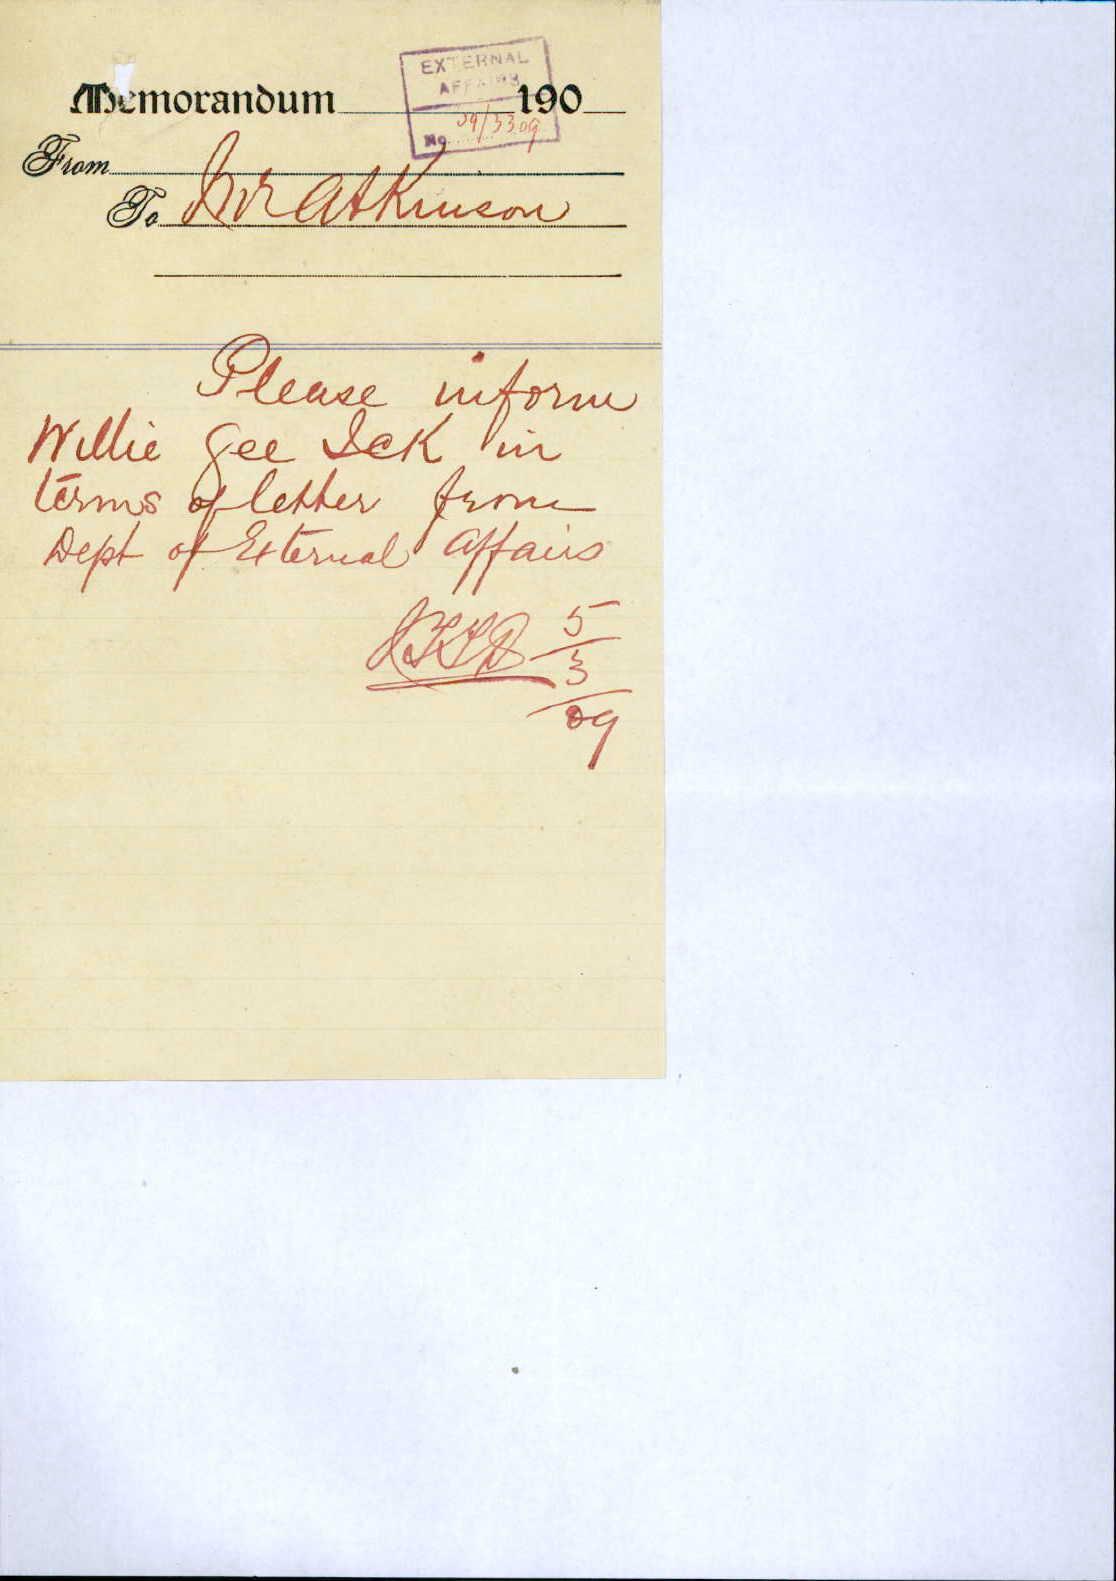 EXTERNAL
AFFAIRS
Memorandum 190
No 09/3309
From
To Mr Atkinson
Please inform
Willie Gee Ick in
terms of letter from
Dept of External Affairs
5/3/09